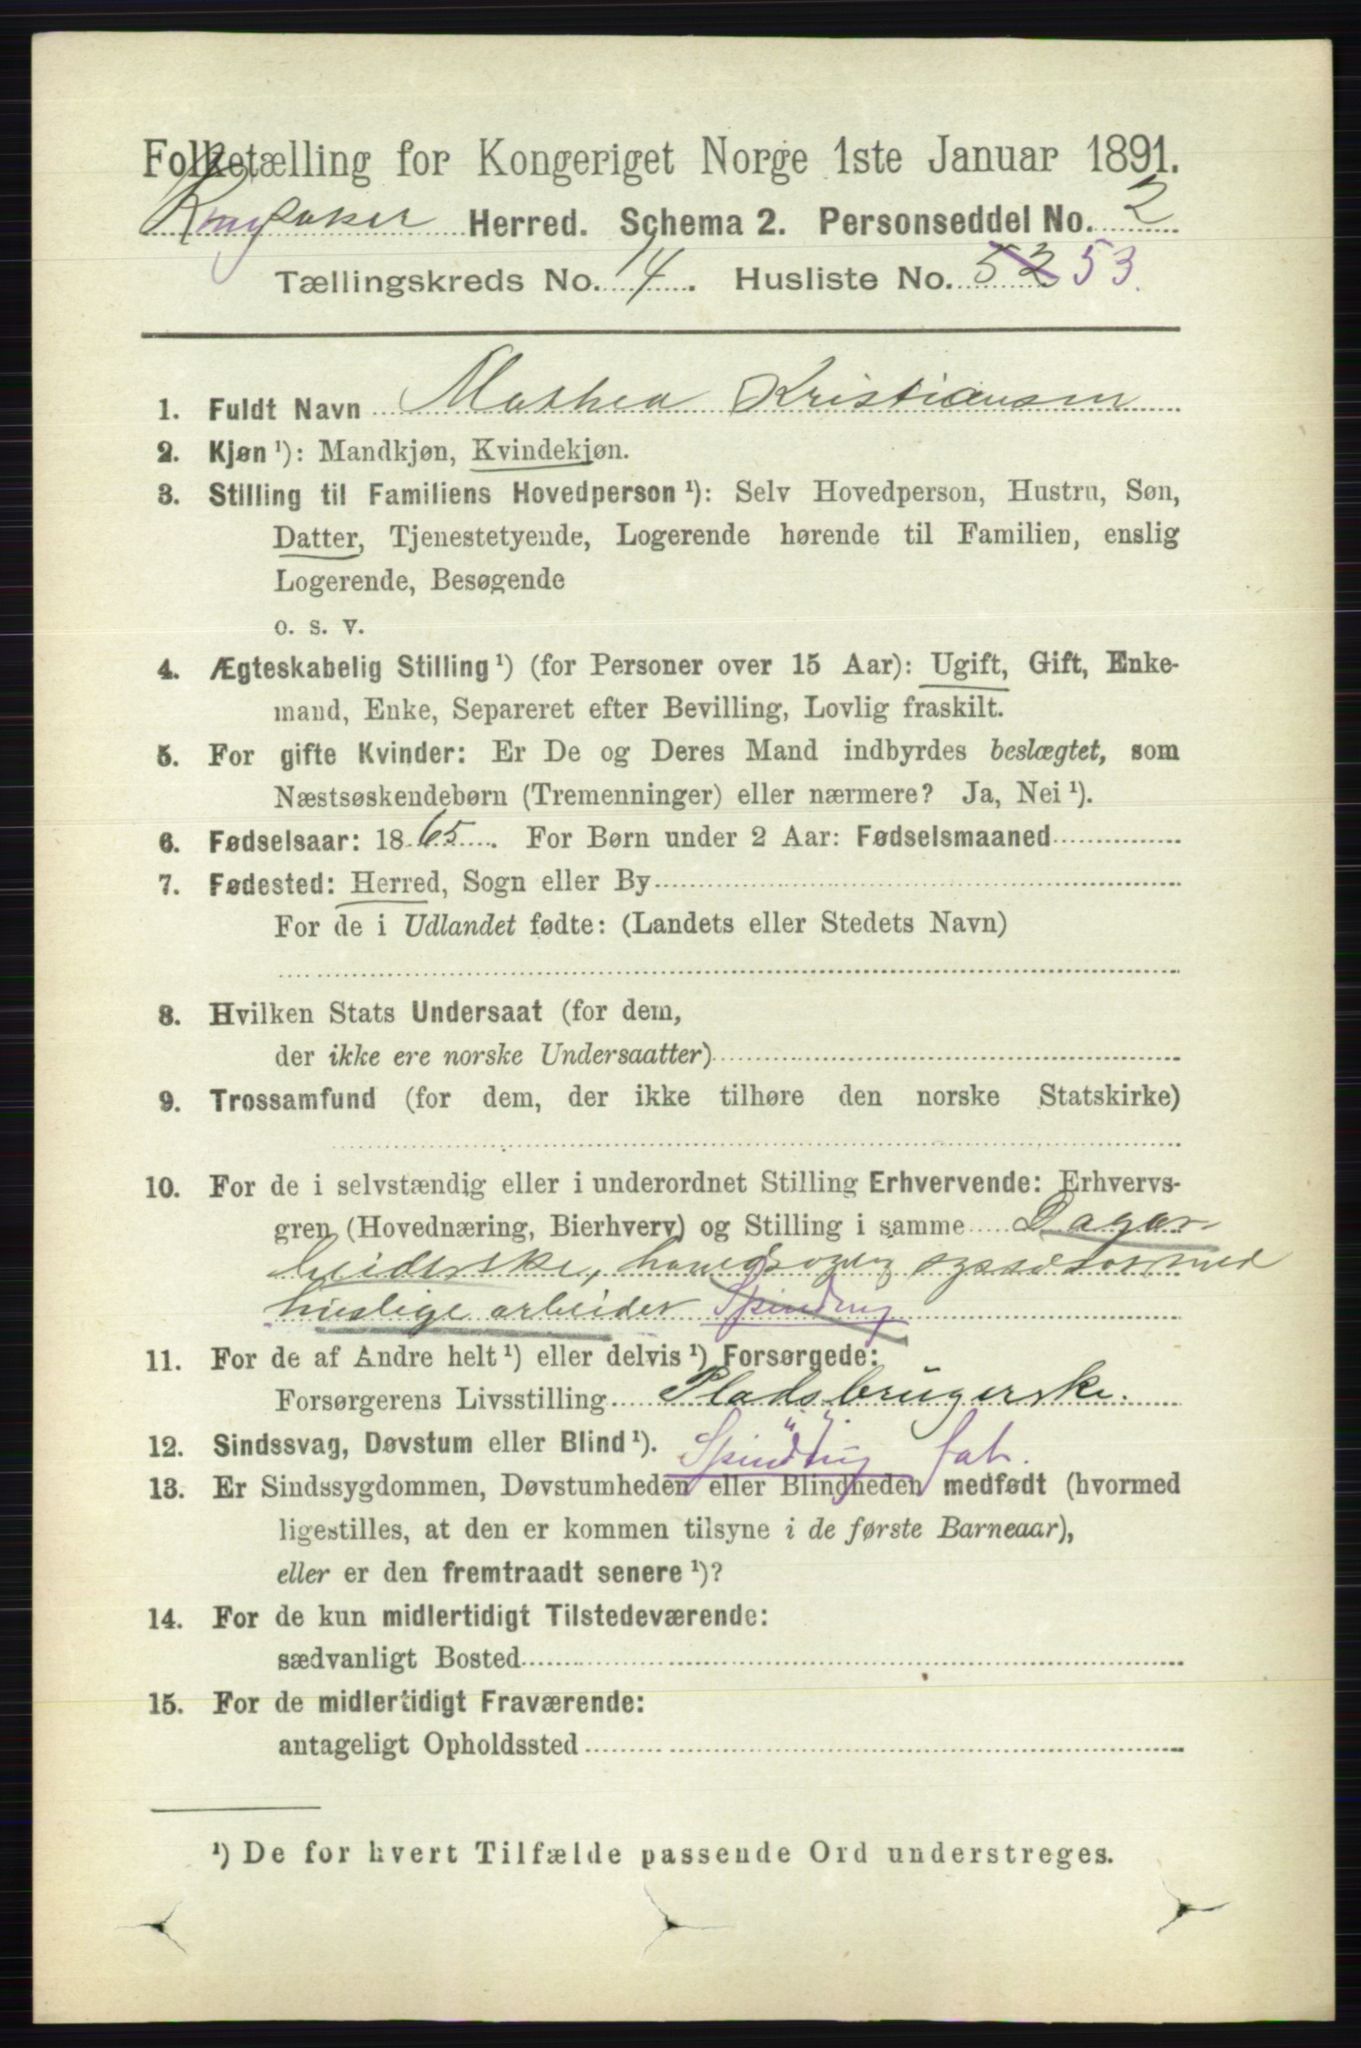 Folketælling for Kongeriget Norge 1ste Januar 1891.
Ringsaker Herred. Schema 2. Personseddel No. 2
Tællingskreds No. 14. Husliste No. 52 53
1. Fuldt Navn Mathea Kristiansen
2. Kjøn ¹): Mandkjøn, Kvindekjøn.
3. Stilling til Familiens Hovedperson ¹): Selv Hovedperson, Hustru, Søn,
Datter, Tjenestetyende, Logerende hørende til Familien, enslig
Logerende, Besøgende
o. s. v.
4. Ægteskabelig Stilling ¹) (for Personer over 15 Aar): Ugift, Gift, Enke-
mand, Enke, Separeret efter Bevilling, Lovlig fraskilt.
5. For gifte Kvinder: Er De og Deres Mand indbyrdes beslægtet, som
Næstsøskendebørn (Tremenninger) eller nærmere? Ja, Nei ¹).
6. Fødselsaar: 1865. For Børn under 2 Aar: Fødselsmaaned
7. Fødested: Herred, Sogn eller By
For de i Udlandet fødte: (Landets eller Stedets Navn)
8. Hvilken Stats Undersaat (for dem,
der ikke ere norske Undersaatter)
9. Trossamfund (for dem, der ikke tilhøre den norske Statskirke)
10. For de i selvstændig eller i underordnet Stilling Erhvervende: Erhvervs-
gren (Hovednæring, Bierhverv) og Stilling i samme Dagar-
beiderske, med
huslige arbeider Spinding
11. For de af Andre helt ¹) eller delvis ¹) Forsørgede:
Forsørgerens Livsstilling Pladsbrugerske.
12. Sindssvag, Døvstum eller Blind ¹). fab.
13. Er Sindssygdommen, Døvstumheden eller Blindheden medfødt (hvormed
ligestilles, at den er kommen tilsyne i de første Barneaar),
eller er den fremtraadt senere ¹)?
14. For de kun midlertidigt Tilstedeværende:
sædvanligt Bosted
15. For de midlertidigt Fraværende:
antageligt Opholdssted
¹) De for hvert Tilfælde passende Ord understreges.